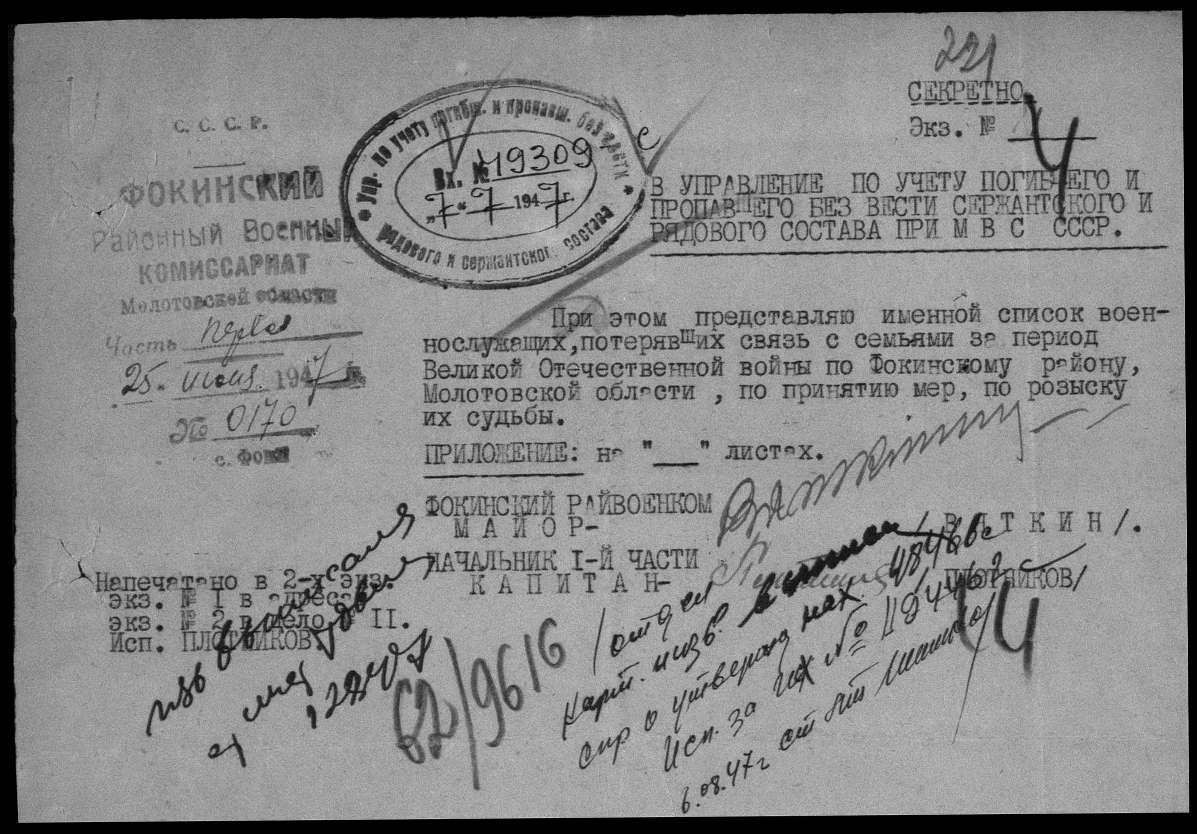 221
СЕКРЕТНО
Экз. № 4
С. С. С. Р.
ФОКИНСКИЙ
Районный Военный
КОМИССАРИАТ
Молотовской области
Часть
25. 1947 г.
№ 0170
с. Фоки
Упр. по учету погибш. и пропавш. без вести
Вх. № 19309
„7“ 7 1947 г.
рядового и сержантског. состава
В УПРАВЛЕНИЕ ПО УЧЕТУ ПОГИБШЕГО И
ПРОПАВШЕГО БЕЗ ВЕСТИ СЕРЖАНТСКОГО И
РЯДОВОГО СОСТАВА ПРИ М В С СССР.
При этом представляю именной список воен-
нослужащих,потерявших связь с семьями за период
Великой Отечественной войны по Фокинскому району,
Молотовской области , по принятию мер, по розыску
их судьбы.
ПРИЛОЖЕНИЕ: на "___" листах.
ФОКИНСКИЙ РАЙВОЕНКОМ
М А Й О Р-
/ В Я Т К И Н /.
НАЧАЛЬНИК I-Й ЧАСТИ
К А П И Т А Н-
/ПЛОТНИКОВ/
Напечатано в 2-х экз.
экз. № I в адреса
экз. № 2 в дело № II.
Исп. ПЛОТНИКОВ.
62/9616
карт. изв.
спр о 48466с
Исп. за вх № 119446с
6.08.47г ст лт